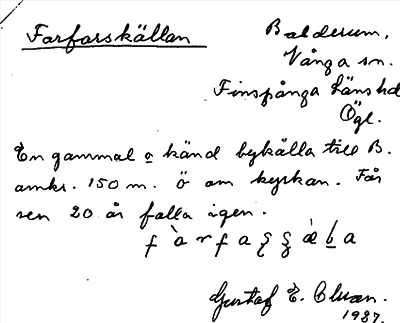 Farfarskällan
Balderum,
Vånga sn.
Finspånga läns hd
Ögl.
En gammal o känd bykälla till B.
omkr. 150 m. Ö om kyrkan. Får
sen 20 år falla igen.
Gustaf E.
1937.